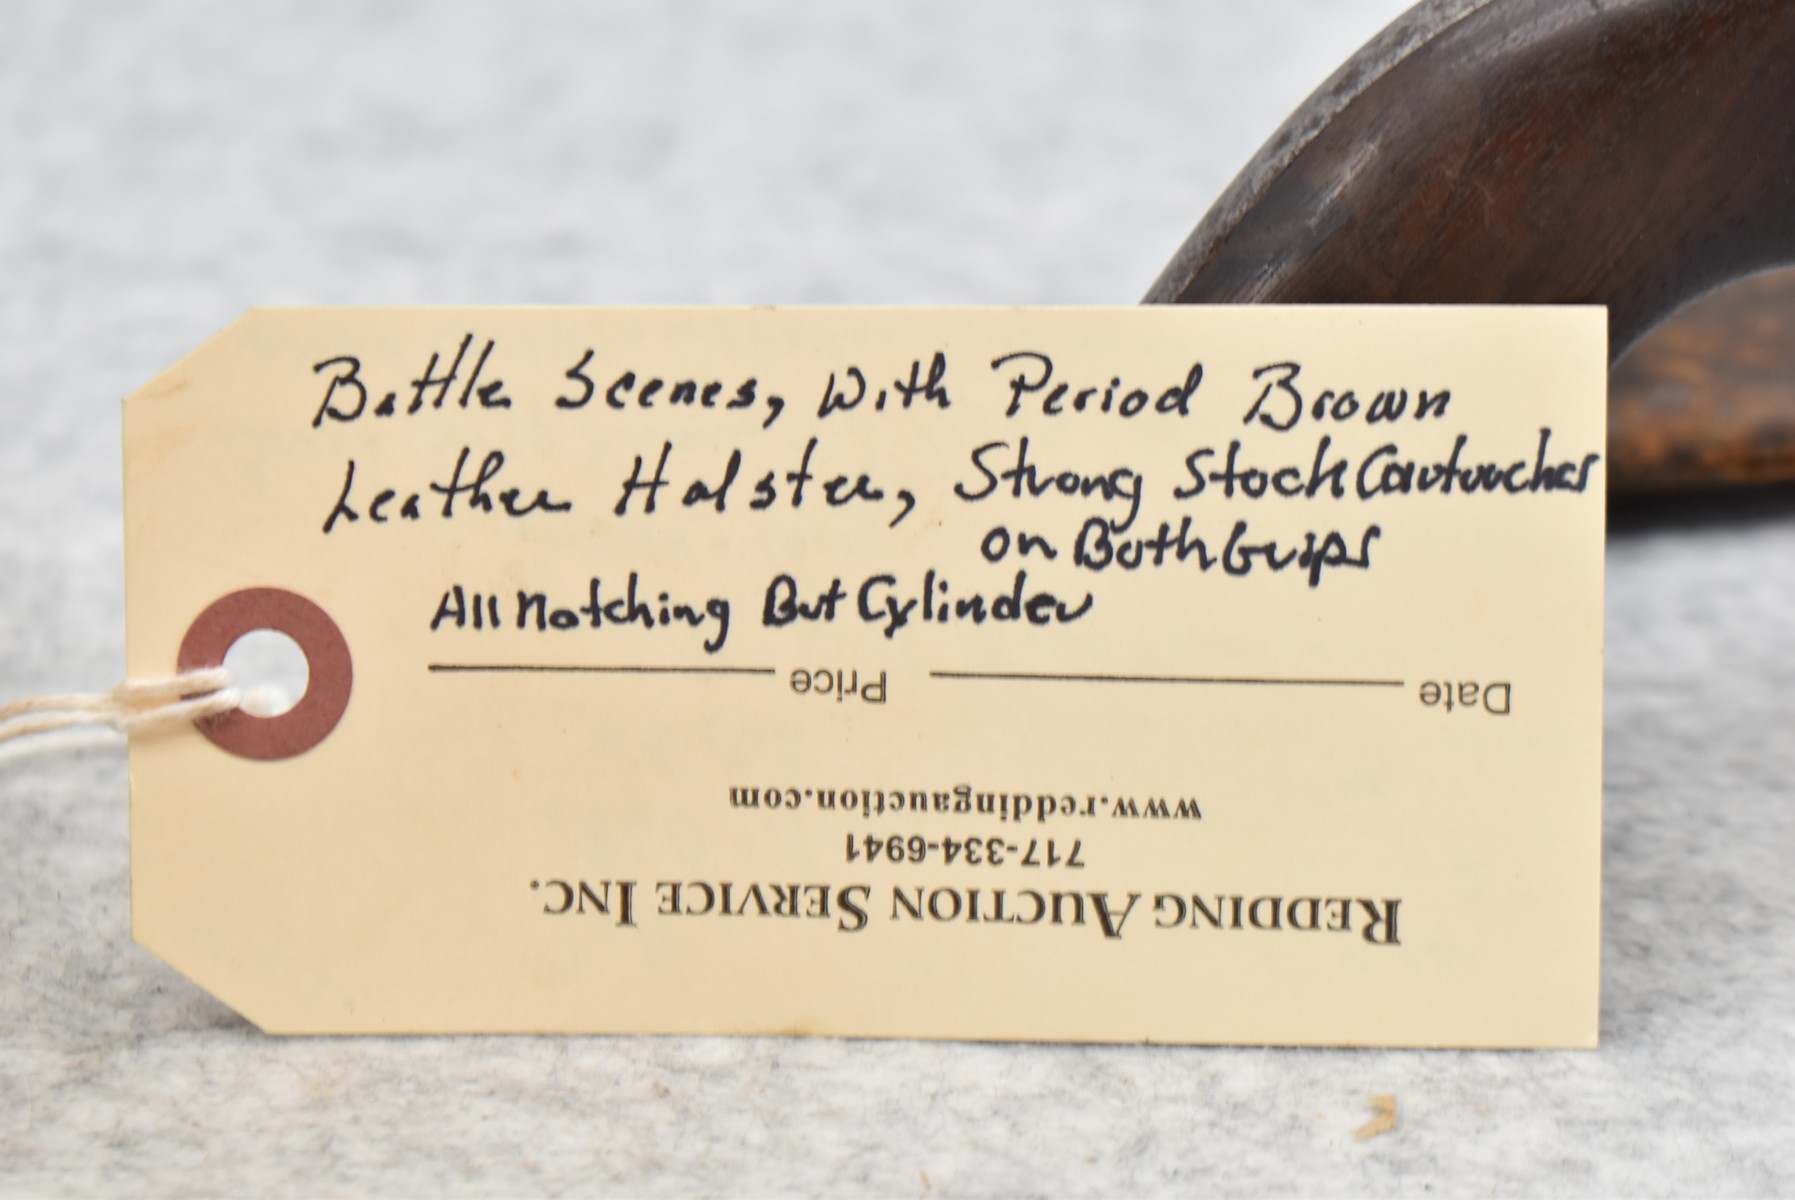 Battle Scenes, With Period Brown
Leather Holster, Strong Stock Cartouches
on Both Grips
All Matching But Cylinder
Date Price
www.reddingauction.com
717-334-6941
REDDING AUCTION SERVICE INC.